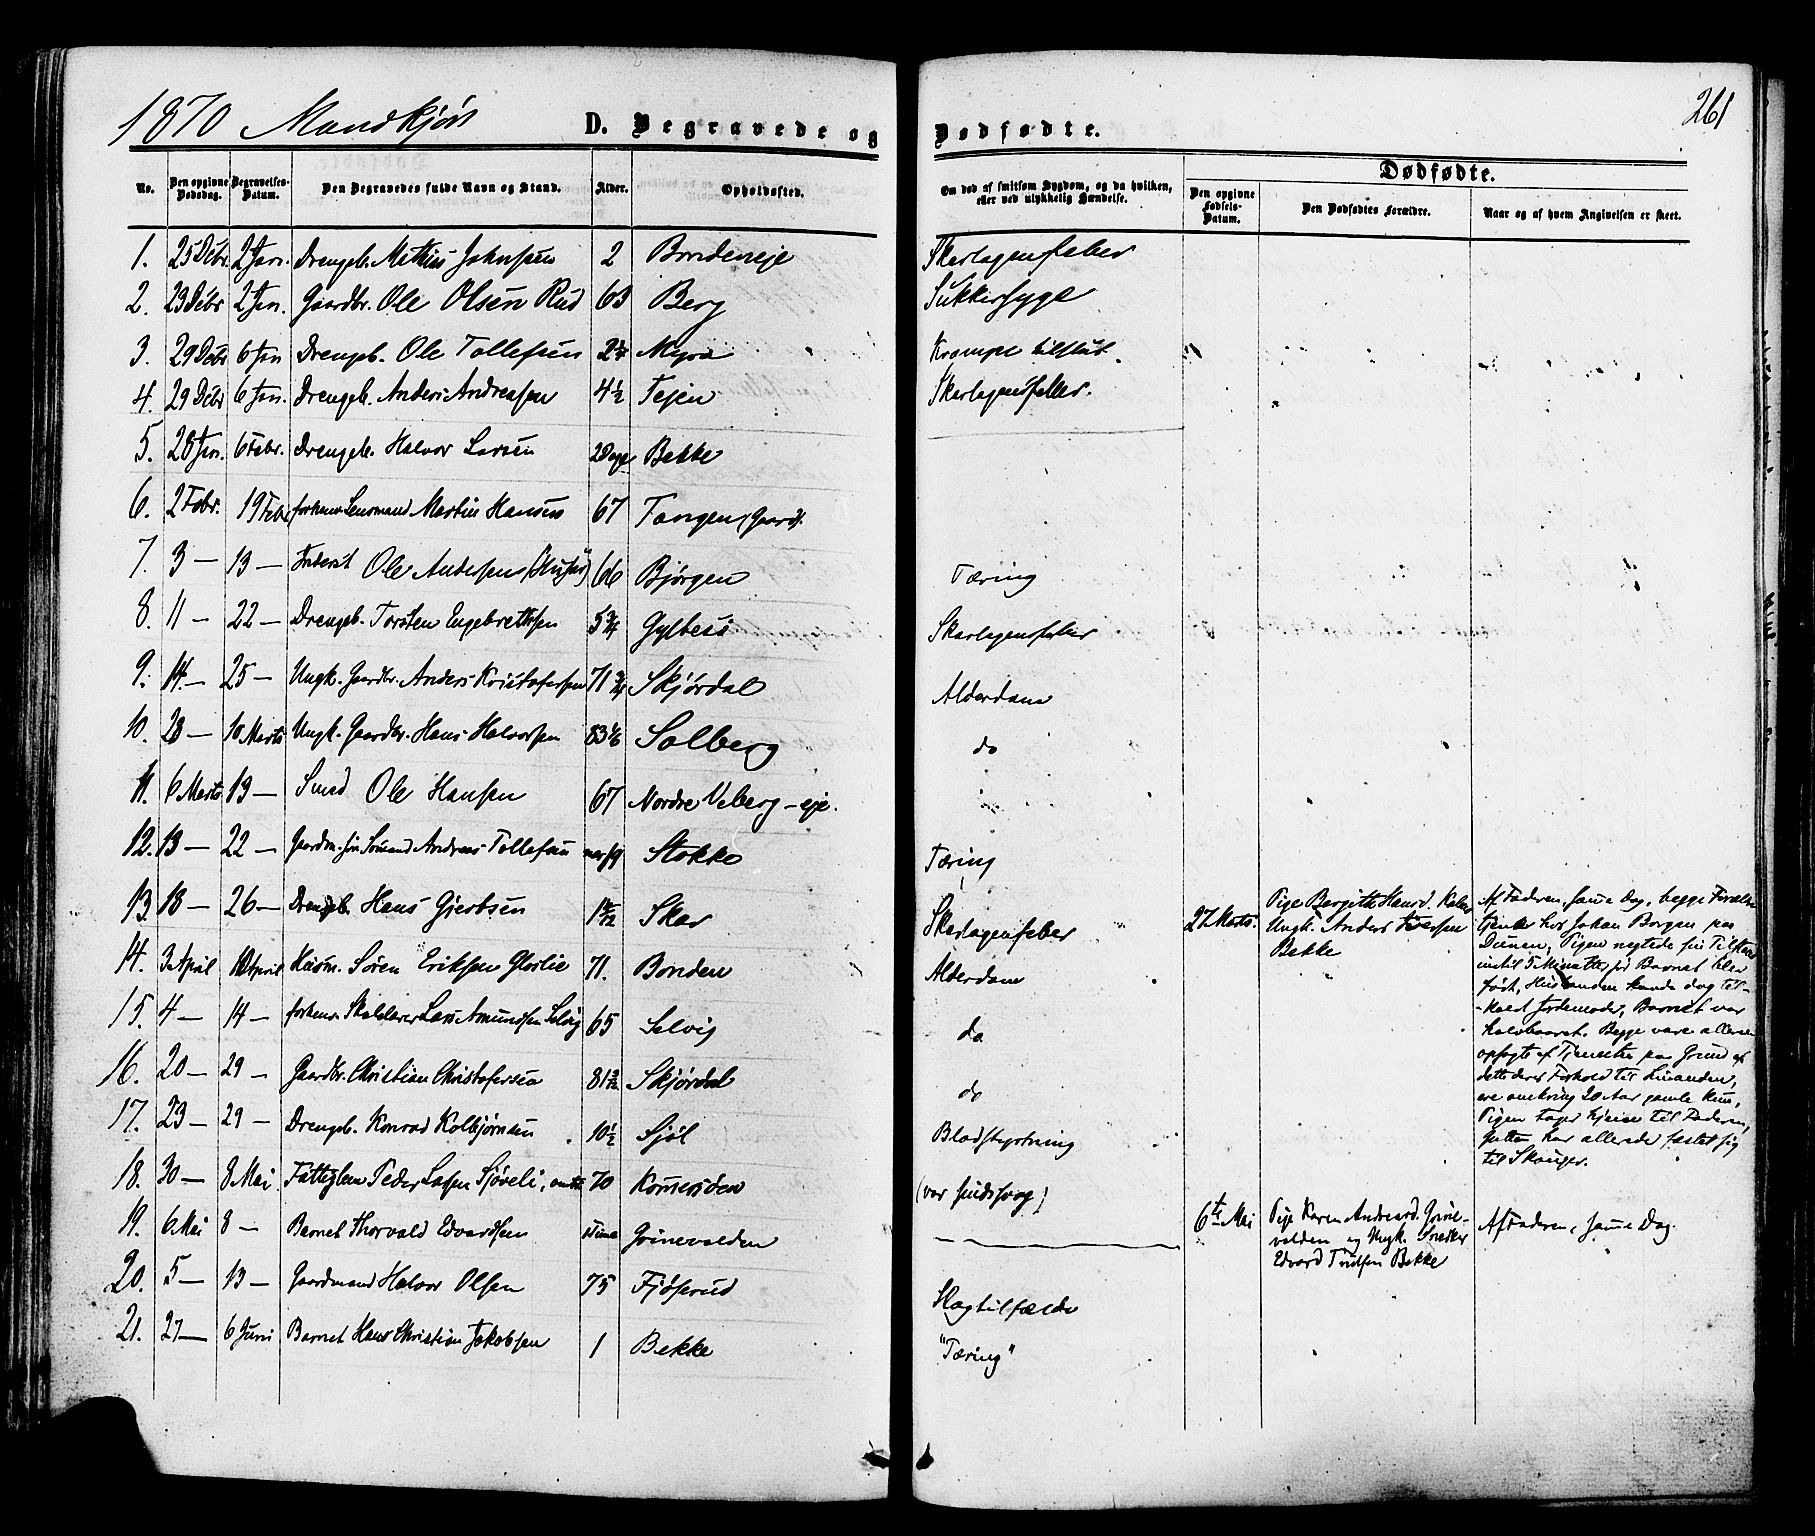 1870 Mandkjøn
D. Begravede og Dødfødte.
261
No. Den opgivne Dødsdag. Begravelses-Datum. Den Begravedes fulde Navn og Stand. Alder. Opholdssted. Om død af smitsom Sygdom, og da hvilken, eller ved ulykkelig Hændelse.
Dødfødte.
Den opgivne Fødsels-Datum. Den Dødfødtes Forældre. Naar og af hvem Angivelsen er skeet.
1. 25 Debr. 2 Jan. Drengeb. Mathias Johnsen 2 Bondeneje Skarlagensfeber
2. 29 Debr 2 Jan. Gaardbr. Ole Olsen Rud 63 Berg Sukkersyge
3. 29 Debr 6 Jan Drengeb. Ole Tollefsen 2½ Myra Krampe tilstøt.
4. 29 Debr 6 Jan. Drengeb. Anders Andreasen 4½ Tejen Skarlagensfeber.
5. 28 Jan. 6 Febr. Drengeb. Halvor Larsen 2 Dage Bekke
6. 2 Febr. 19 Febr forhenv. Lensmand Martin Hansen 67 Tangen (Gaard).
7. 3 — 13 — Inderst Ole Andersen 66 Bjørgen Tæring
8. 11 — 22 — Drengeb. Torsten Engebrethsen 5¾ Gylbess Skarlagensfeber
9. 14 — 25 — Ungk. Gaardbr. Anders Kristofersen 71¾ Skjørdal Alderdom
10. 28 — 10 Marts Ungk. Gaardbr. Hans Halvorsen 83 Solberg do
11. 6 Marts 19 — Smed Ole Hansen 67 Nordre Veberg-eje.
12. 13 — 22 — Andreas Tollefsen 19 Stokke Tæring
13. 18 — 26 — Drengeb. Hans Gjertsen Skar Skarlagensfeber
27 Marts. Pige Bergitte Hansd.
Ungk. Anders Iversen
Bekke
Af Faderen, samme Dag, begge Forældre
tjente hos Johan Borgen paa
Pigen negtede sin Tilstand
indtil 5 Minutter før Barnet blev
født, Husbonden havde dog til-
kaldt Jordemoder, Barnet var
halvbaaret. Begge vare allerede
opsagte af Tjenesten paa Grund af
dette deres Forhold til hinanden,
ere omkring 20 Aar gamle kun,
Pigen tager hjem til Faderen,
Gutten har allerede fæstet sig
til Skouger.
14. 3 April 10 April Søren Eriksen Glorlie 71. Bonden Alderdom
15. 4 — 14 — forhenv. Skolelærer Lars Amundsen Selvig 65 Selvig do
16. 20 — 29 — Gaardbr. Christian Christofersen 81 Skjørdal do
17. 23 — 29 — Drengeb. Konrad Kolbjørnsen 10½ Sjøl Blodstyrtning
18. 30 — 8 Mai Fattiglem Peder Larsen Sjøveli, 70 Komersden (var sindssvag)
19. 6 Mai 8 — Barnet Thorvald Edvardsen Time Grinevolden
6te Mai Pige Karen Andreasd. Grine-
volden og Ungk. Snedker
Edvard Bekke
Af Faderen, samme Dag.
20. 5 — 13 — Gaardmand Halvor Olsen 75 Fjøserud Slagtilfælde
21. 27 — 6 Juni Barnet Hans Christian Jakobsen 1 Bekke "Tæring"